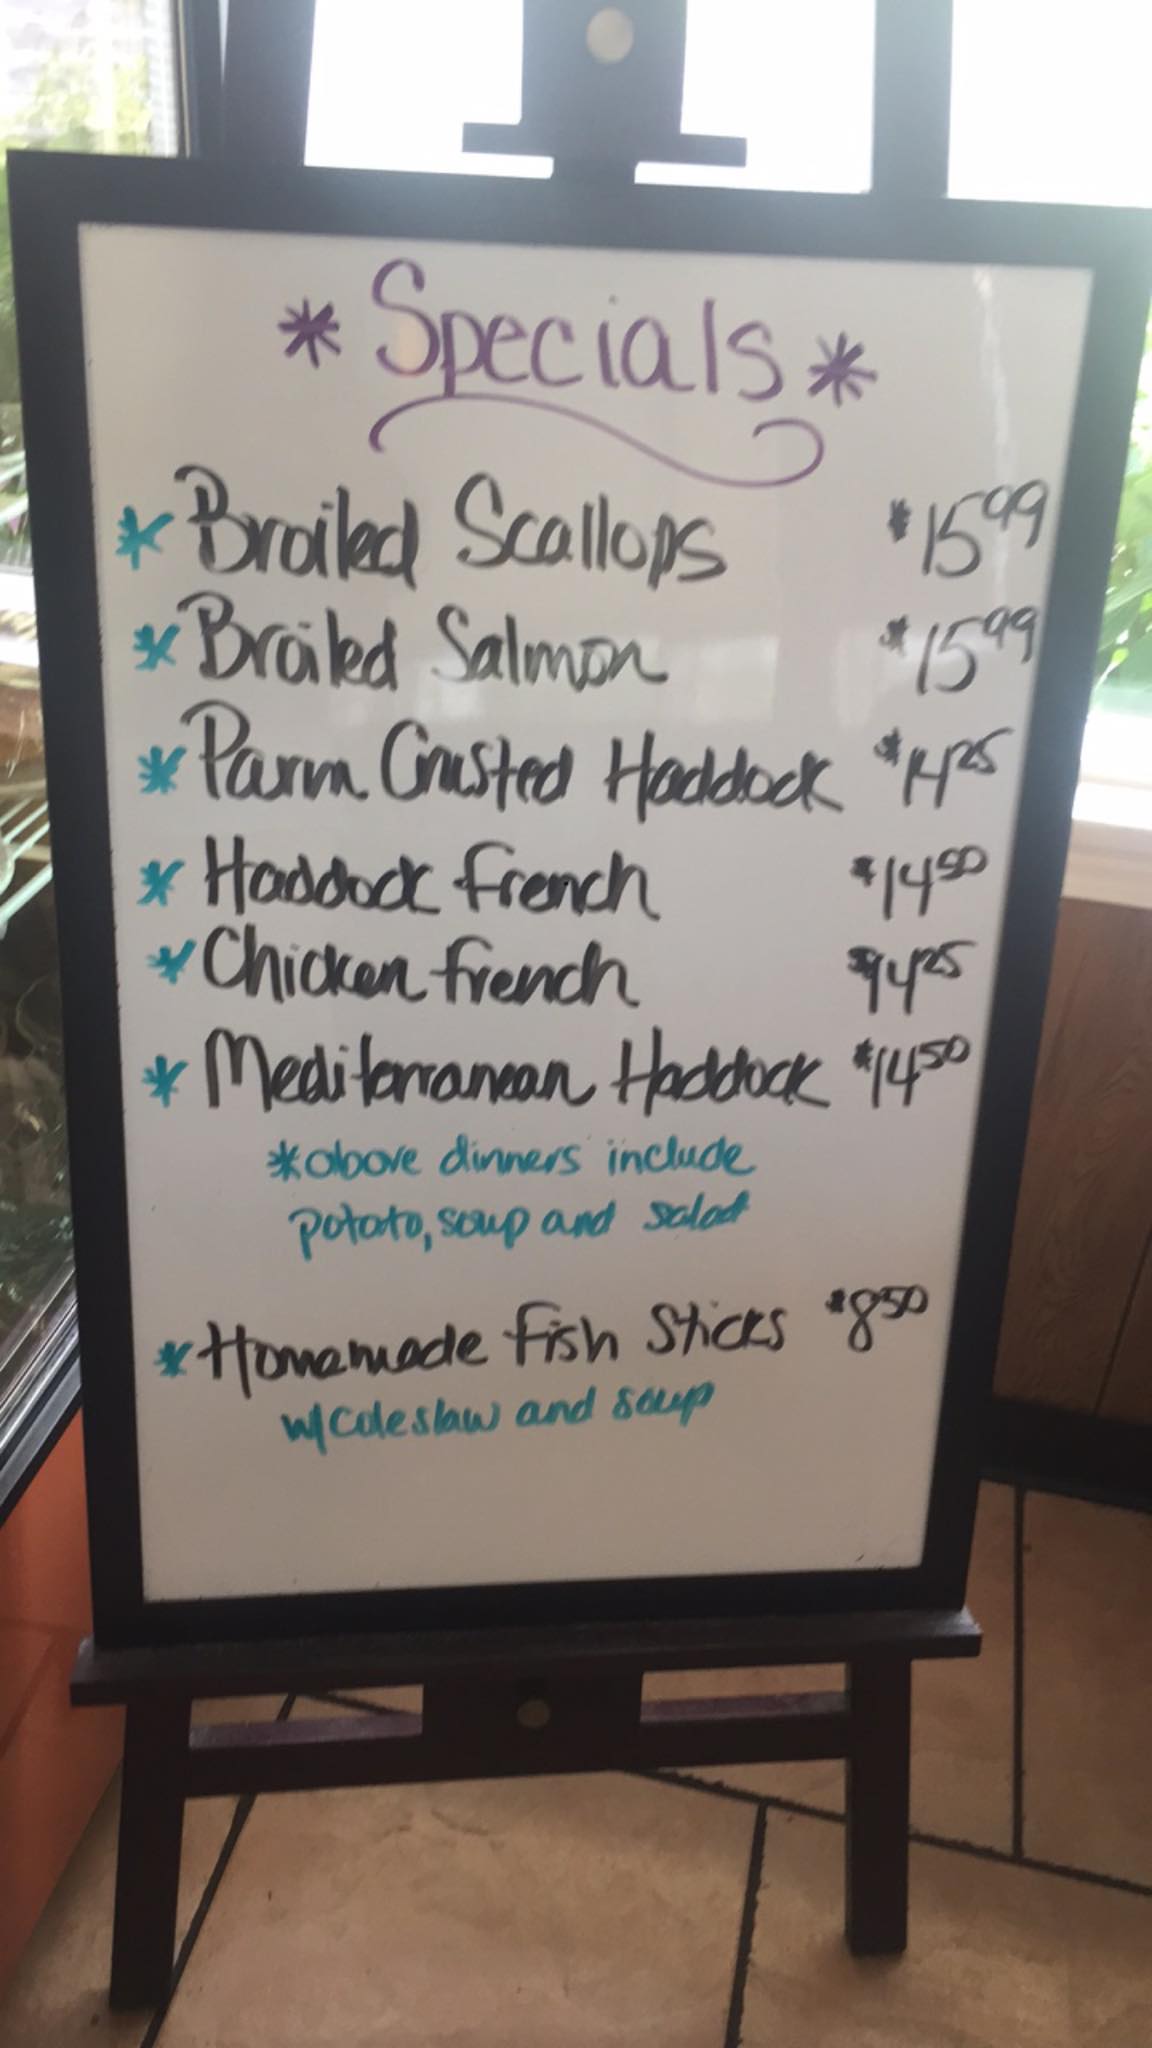 * Specials *
* Broiled Scallops $15.99
* Broiled Salmon $15.99
* Parm Crusted Haddock $14.25
* Haddock French $14.50
* Chicken French $14.25
* Mediterranean Haddock $14.50
* above dinners include
potato, soup and salad
* Homemade Fish Sticks $8.50
w/ Coleslaw and soup